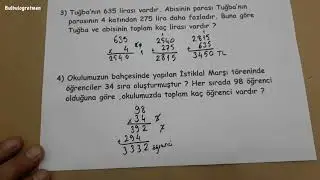 Bulbulogretmen
3) Tuğba'nın 635 lirası vardır. Abisinin parası Tuğba'nın
parasının 4 katından 275 lira daha fazladır. Buna göre
Tuğba ve abisinin toplam kaç lirası vardır ?
635
x 4
2540
2540
+ 275
2815
2815
+ 635
3450 TL
4) Okulumuzun bahçesinde yapılan İstiklal Marşı töreninde
öğrenciler 34 sıra oluşturmuştur ? Her sırada 98 öğrenci
olduğuna göre ,okulumuzda toplam kaç öğrenci vardır ?
98
x 34
392
+ 294
3332 öğrenci